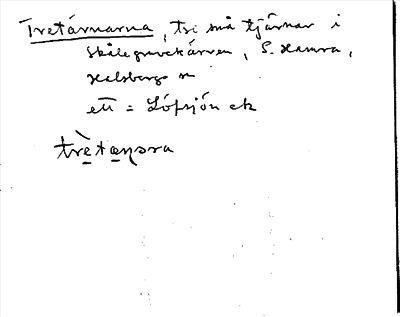 Tretärnarna, tri små tjärnar i
skåle gruvekärven, S. Hamra,
Halsbergs n
ett = Löfsjön ek
trètæṇəra